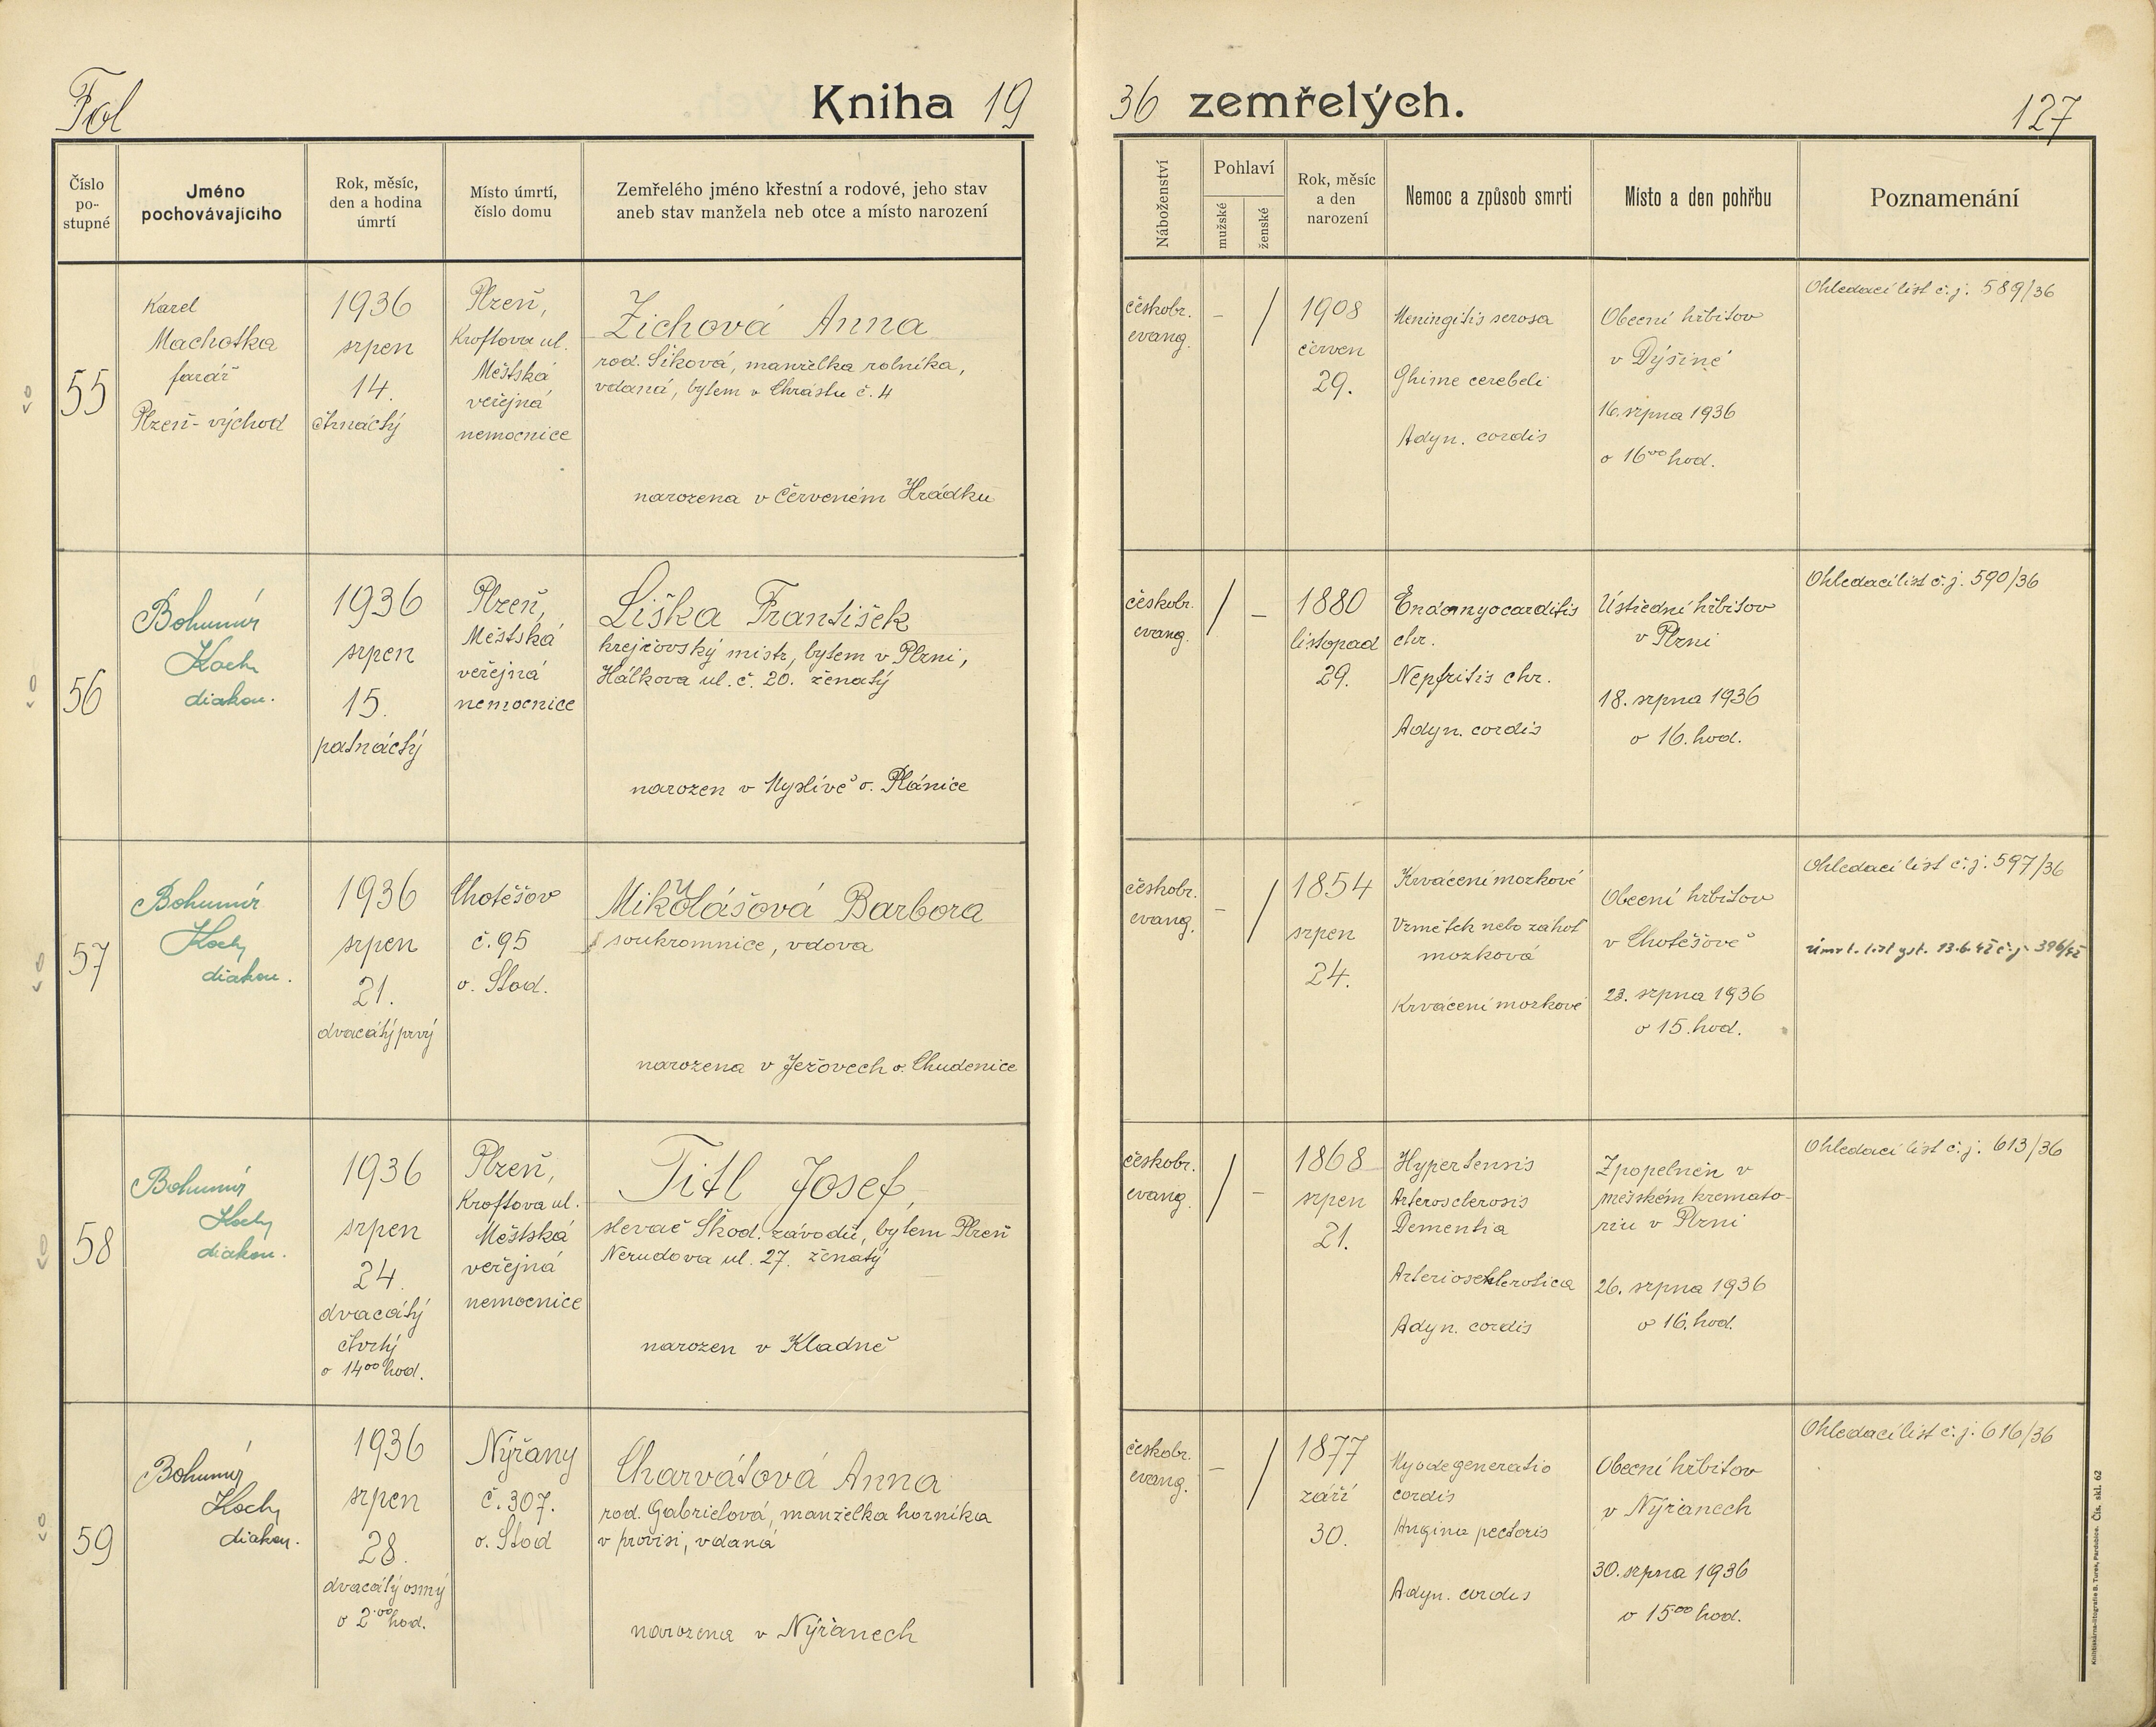 Fol
Kniha 19
36 zemřelých.
127
Číslo po-stupné
Jméno pochovávajícího
Rok, měsíc, den a hodina úmrtí
Místo úmrtí, číslo domu
Zemřelého jméno křestní a rodové, jeho stav
aneb stav manžela neb otce a místo narození
Náboženství
Pohlaví
mužské
ženské
Rok, měsíc a den narození
Nemoc a způsob smrti
Místo a den pohřbu
Poznamenání
55
Karel
Machotka
farář
Plzeň-východ
1936
srpen
14.
čtrnáctý
Plzeň,
Kroftova ul.
Městská
veřejná
nemocnice
Zichová Anna
rod. Šiková, manželka rolníka,
vdaná, bytem v Chrástu č. 4
narozena v Červeném Hrádku
českobr.
evang.
–
/
1908
červen
29.
Meningitis serosa
cerebeli
Adyn. cordis
Obecní hřbitov
v Dýšině
16. srpna 1936
o 16⁰⁰ hod.
Ohledací list č. j. 589/36
56
Bohumír
Koch
diakon.
1936
srpen
15.
patnáctý
Plzeň,
Městská
veřejná
nemocnice
Liška František
krejčovský mistr, bytem v Plzni,
Hálkova ul. č. 20. ženatý
narozen v Myslívě o. Plánice
českobr.
evang.
/
–
1880
listopad
29.
Endomyocarditis
chr.
Nepfritis chr.
Adyn. cordis
Ústřední hřbitov
v Plzni
18. srpna 1936
o 16. hod.
Ohledací list č. j. 590/36
57
Bohumír
Koch
diakon.
1936
srpen
21.
dvacátý prvý
Chotěšov
č. 95
o. Stod.
Mikolášová Barbora
soukromnice, vdova
narozena v Ježovech o. Chudenice
českobr.
evang.
–
/
1854
srpen
24.
Krvácení mozkové
Vrmětek nebo záhať
mozková
Krvácení mozkové
Obecní hřbitov
v Chotěšově
23. srpna 1936
o 15. hod.
Ohledací list č. j. 597/36
Úmrt. list 13.6. č. j. 396/42
58
Bohumír
Koch
diakon.
1936
srpen
24.
dvacátý
čtvrtý
o 14⁰⁰ hod.
Plzeň,
Kroftova ul.
Městská
veřejná
nemocnice
Titl Josef,
slevač Škod. závodů, bytem Plzeň
Nerudova ul. 27. ženatý
narozen v Kladně
českobr.
evang.
/
–
1868
srpen
21.
Hypertensis
Arterosclerosis
Dementia
Arteriosclerotica
Adyn. cordis
Zpopelněn v
městském kremato-
riu v Plzni
26. srpna 1936
o 16. hod.
Ohledací list č. j. 613/36
59
Bohumír
Koch
diakon.
1936
srpen
28.
dvacátý osmý
o 2⁰⁰ hod.
Nýřany
č. 307.
o. Stod
Charvátová Anna
rod. Gabrielová, manželka horníka
v provisi, vdaná
narozena v Nýřanech
českobr.
evang.
–
/
1877
září
30.
Myodegeneratio
cordis
Angina pectoris
Adyn. cordis
Obecní hřbitov
v Nýřanech
30. srpna 1936
o 15⁰⁰ hod.
Ohledací list č. j. 616/36
Knihtiskárna-litografie B. Turek, Pardubice. Čís. skl. 62